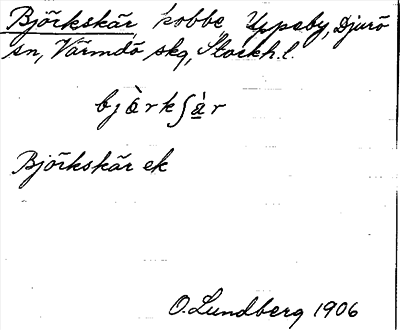 Björkskär, kobbe, Uppeby, Djurö
sn, Värmdö skg, Stockh.l.
bjò̤rkʃà̤r
Björkskär ek
O. Lundberg 1906